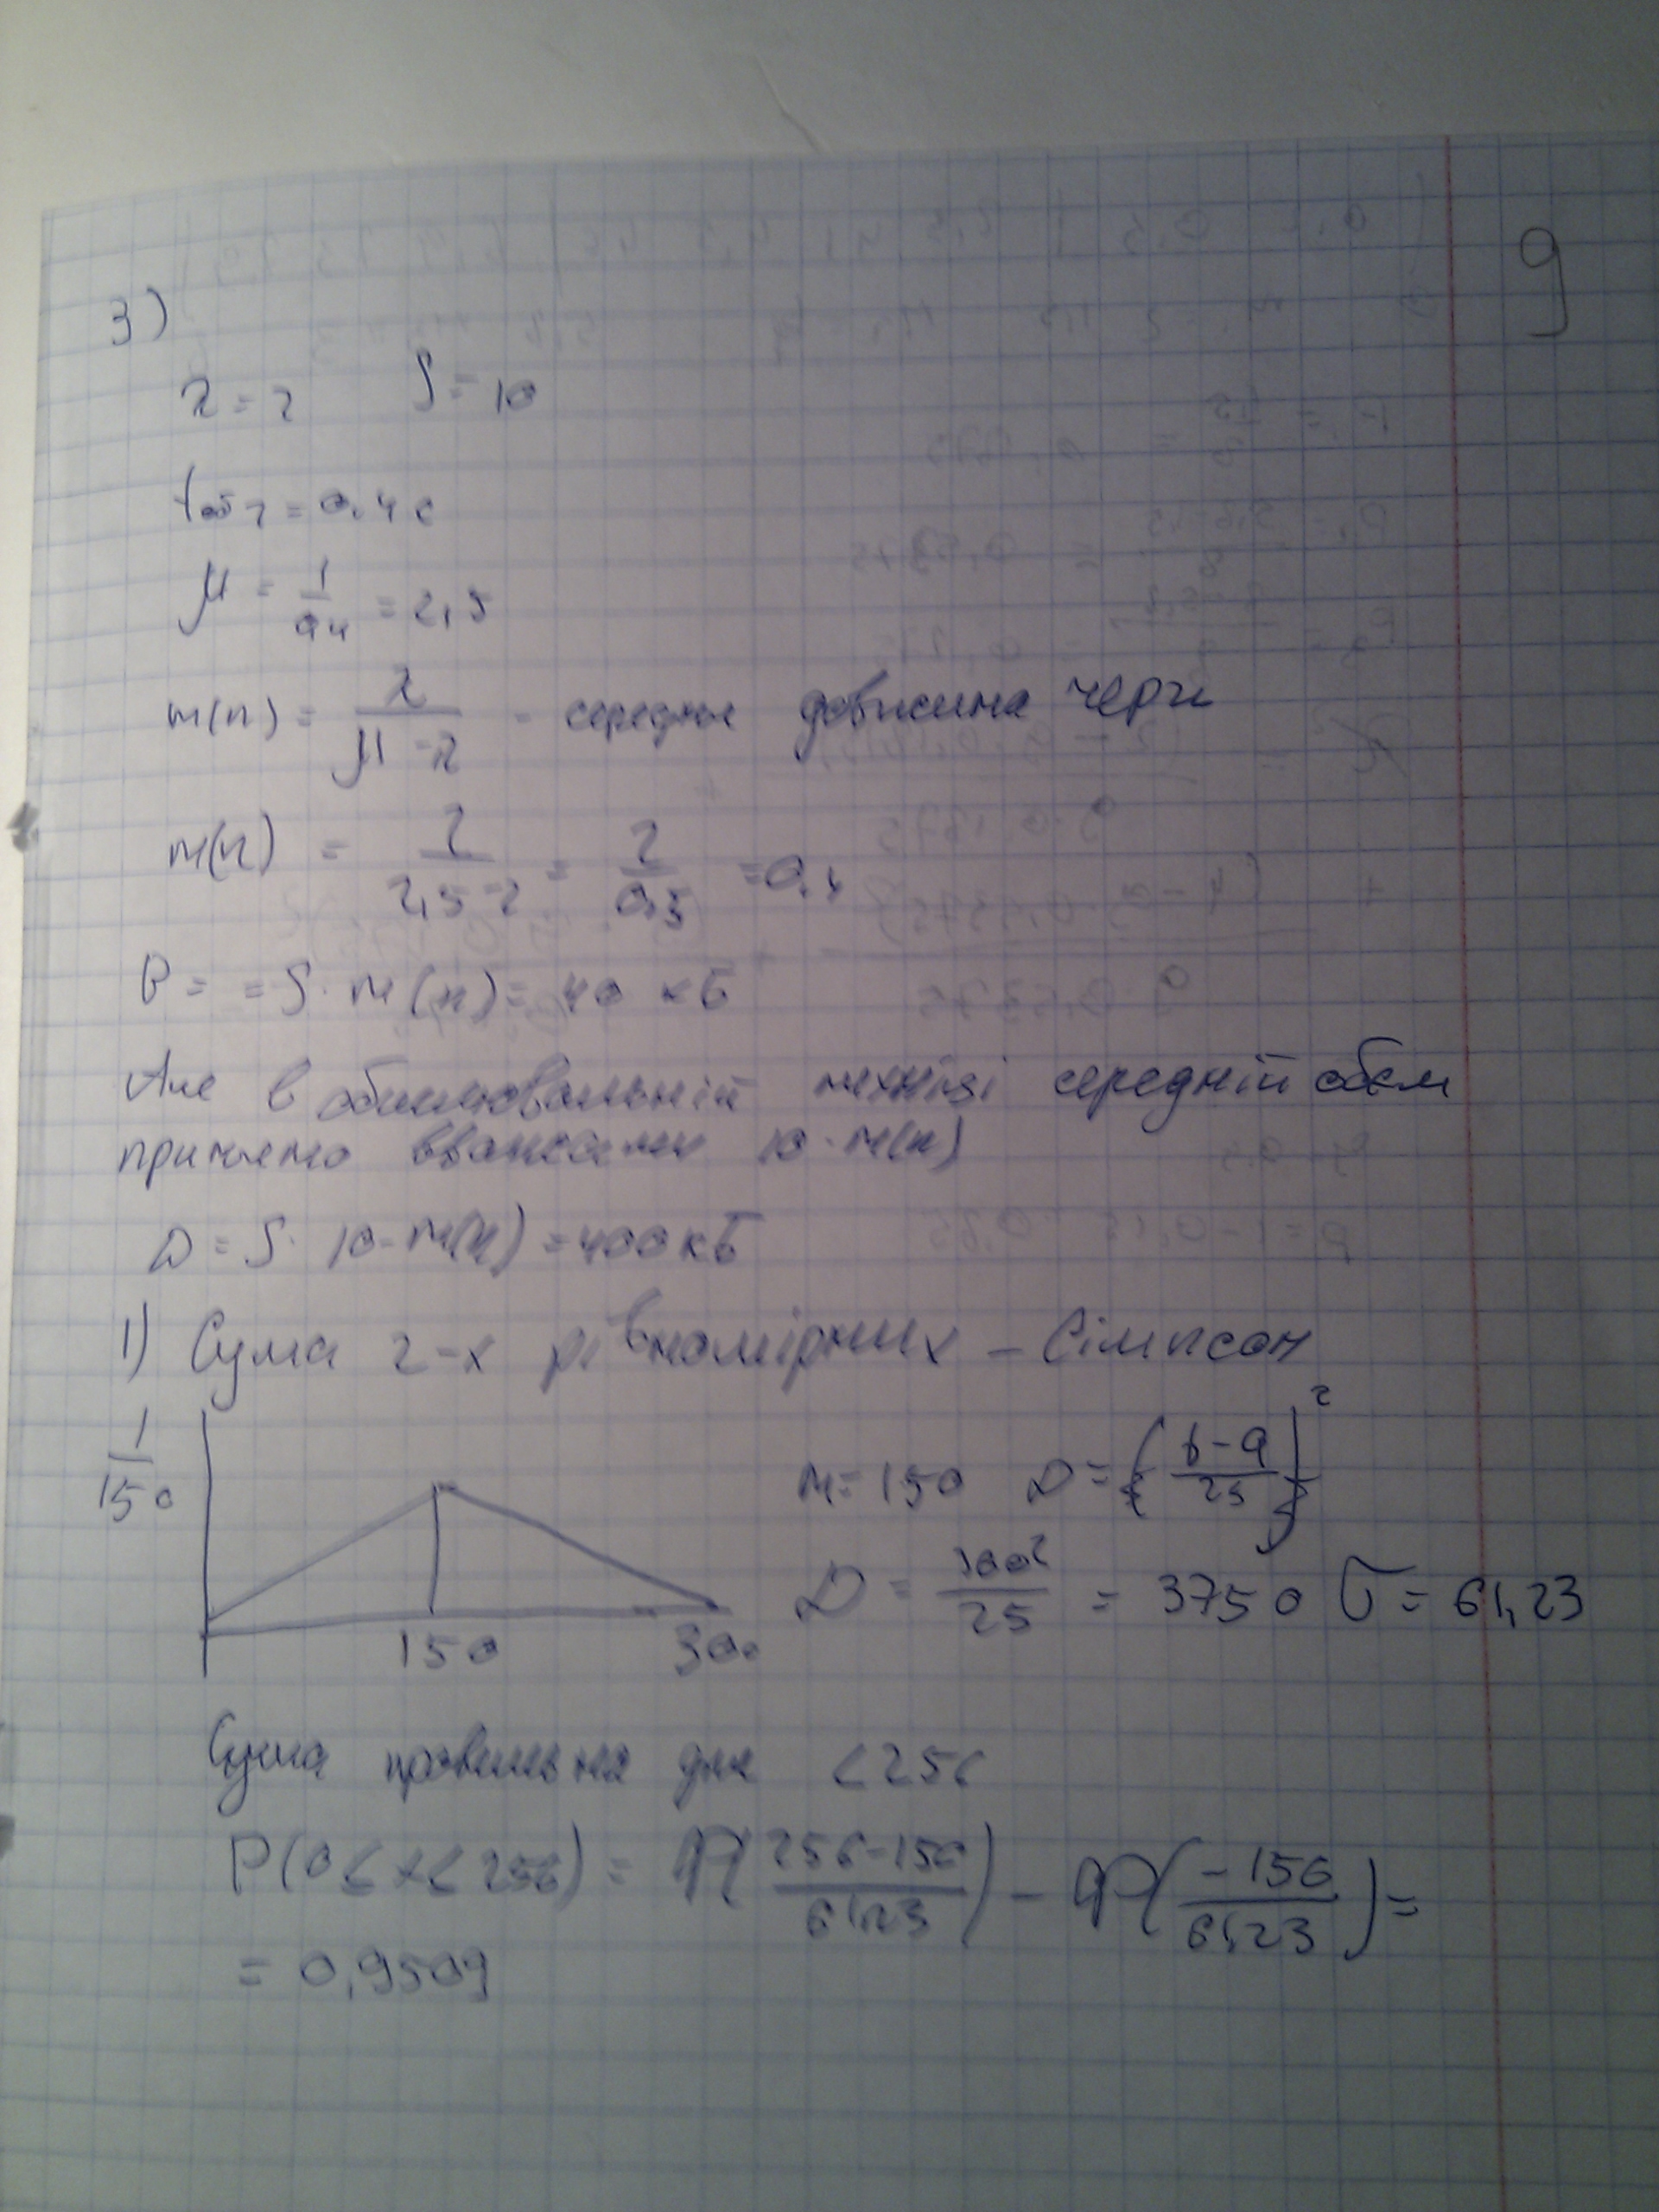 9
3)
λ = 2 S = 10
tобч = 0,4 с
μ = 1/0,4 = 2,5
m(n) = λ/(μ-λ) - середня довжина черги
m(n) = 2/(2,5-2) = 2/0,5 = 0,4
= S · m(n) = 40 кБ
Але в обчислювальній техніці середній обєм
прийнято вважати 10 · m(n)
D = S · 10 · m(n) = 400 кБ
1) Сума 2-х рівномірних - Сімпсон
1/150
M = 150 D = (b-a/25)²
D = 300²/25 = 3750 σ = 61,23
150 300
Сума правильна для < 256
P(0 ≤ x < 256) = Ф(256-150/61,23) - Ф(-150/61,23) =
= 0,9509